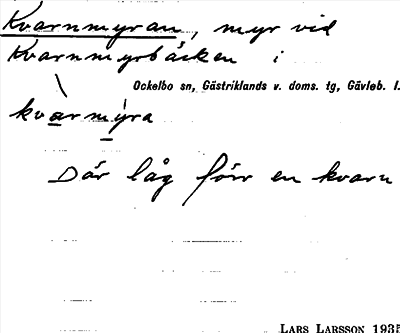 Kvarnmyran, myr vid
Kvarnmyrbäcken i
Ockelbo sn, Gästriklands v. doms. tg, Gävleb. l.
kvarmyra
Där låg förr en kvarn
LARS LARSSON 1935